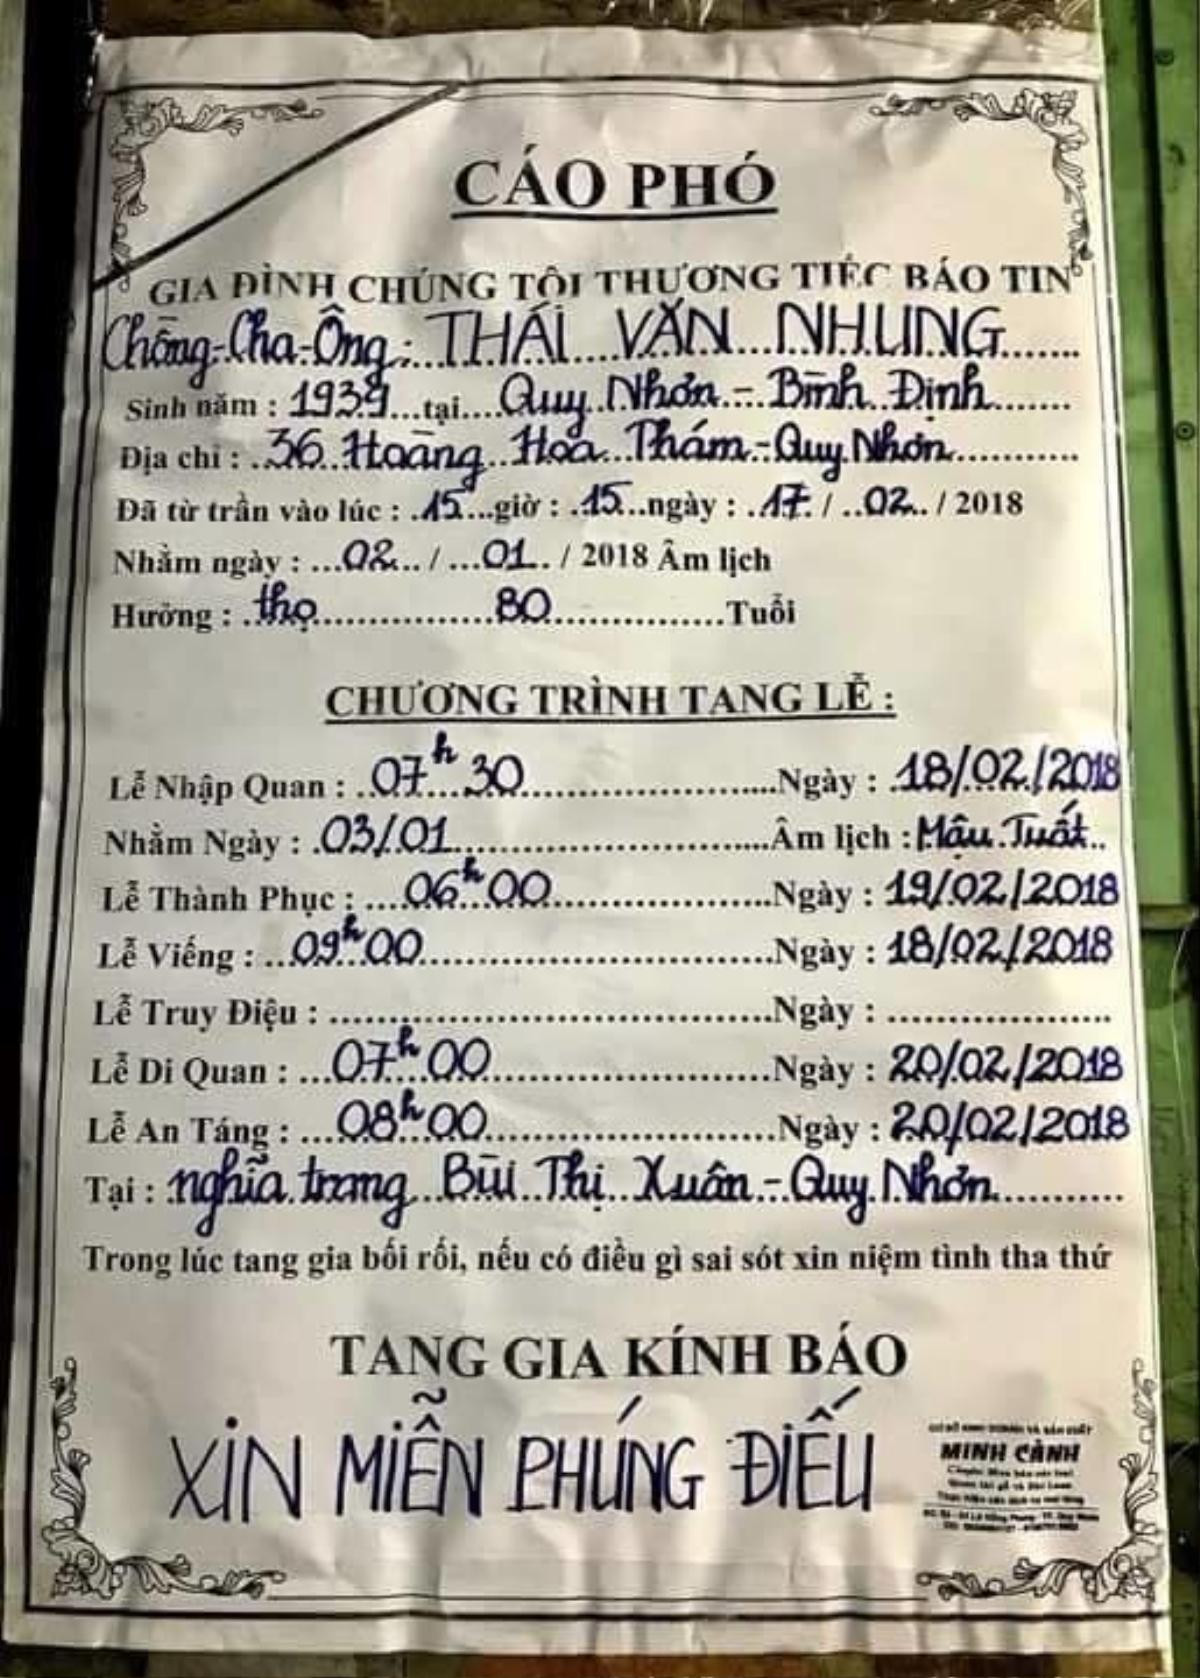 CÁO PHÓ
GIA ĐÌNH CHÚNG TÔI THƯƠNG TIẾC BÁO TIN
Chồng-Cha-Ông: THÁI VĂN NHUNG
Sinh năm : 1939 tại Quy Nhơn - Bình Định
Địa chỉ : 36 Hoàng Hoa Thám - Quy Nhơn
Đã từ trần vào lúc : 15 giờ : 15 ngày : 17 / 02 / 2018
Nhằm ngày : 02 / 01 / 2018 Âm lịch
Hưởng : thọ 80 Tuổi
CHƯƠNG TRÌNH TANG LỄ :
Lễ Nhập Quan : 07h30 Ngày : 18/02/2018
Nhằm Ngày : 03/01 Âm lịch : Mậu Tuất
Lễ Thành Phục : 06h00 Ngày : 19/02/2018
Lễ Viếng : 09h00 Ngày : 18/02/2018
Lễ Truy Điệu : Ngày :
Lễ Di Quan : 07h00 Ngày : 20/02/2018
Lễ An Táng : 08h00 Ngày : 20/02/2018
Tại : nghĩa trang Bùi Thị Xuân - Quy Nhơn
Trong lúc tang gia bối rối, nếu có điều gì sai sót xin niệm tình tha thứ
TANG GIA KÍNH BÁO
XIN MIỄN PHÚNG ĐIẾU
MINH CẢNH